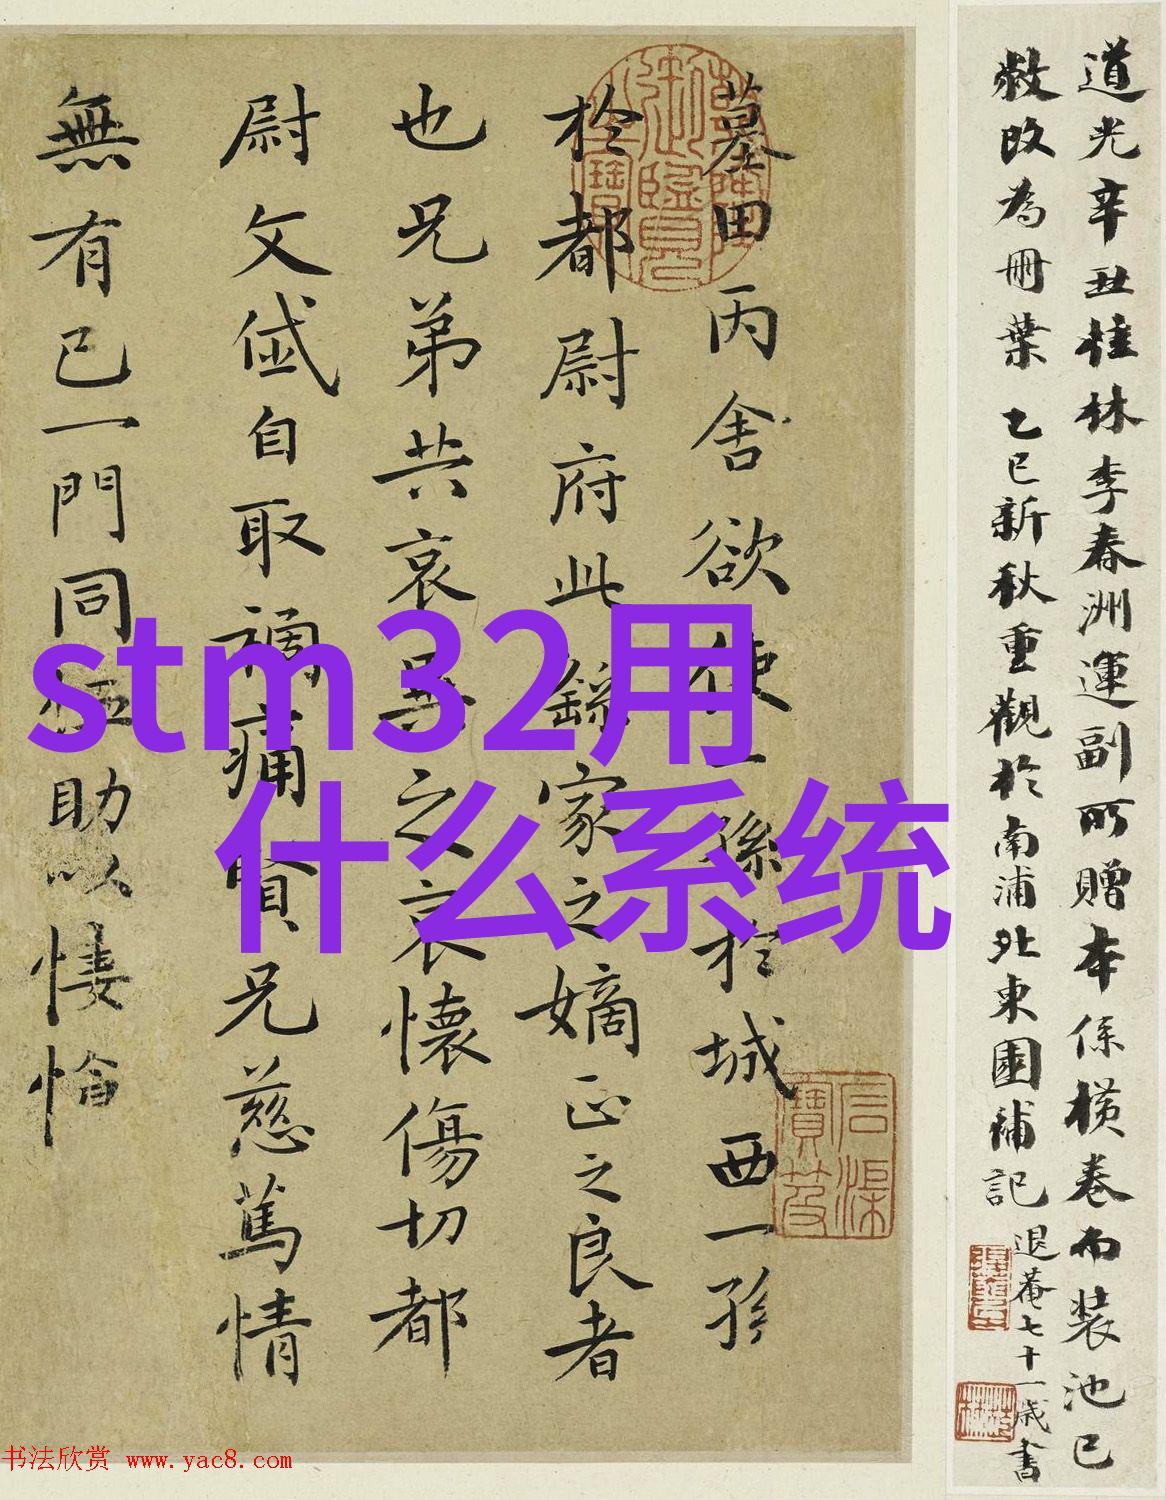 道光辛丑桂林李春洲運副所贈本係橫卷而裝池已
敝改為冊葉乙巳新秋重觀於南浦北東園補記
退菴七十一歲書
墓田丙舍欲使一孫於城西一孫
於都尉府此繇家之嫡正之良者
也兄弟共哀異之哀懷傷切都
尉文自取禍痛賢兄慈篤情
無有已一門同恤助以悽愴
乾隆御覽之寶
石渠寶笈
stm32用
什么系统
书法欣赏 www.yac8.com